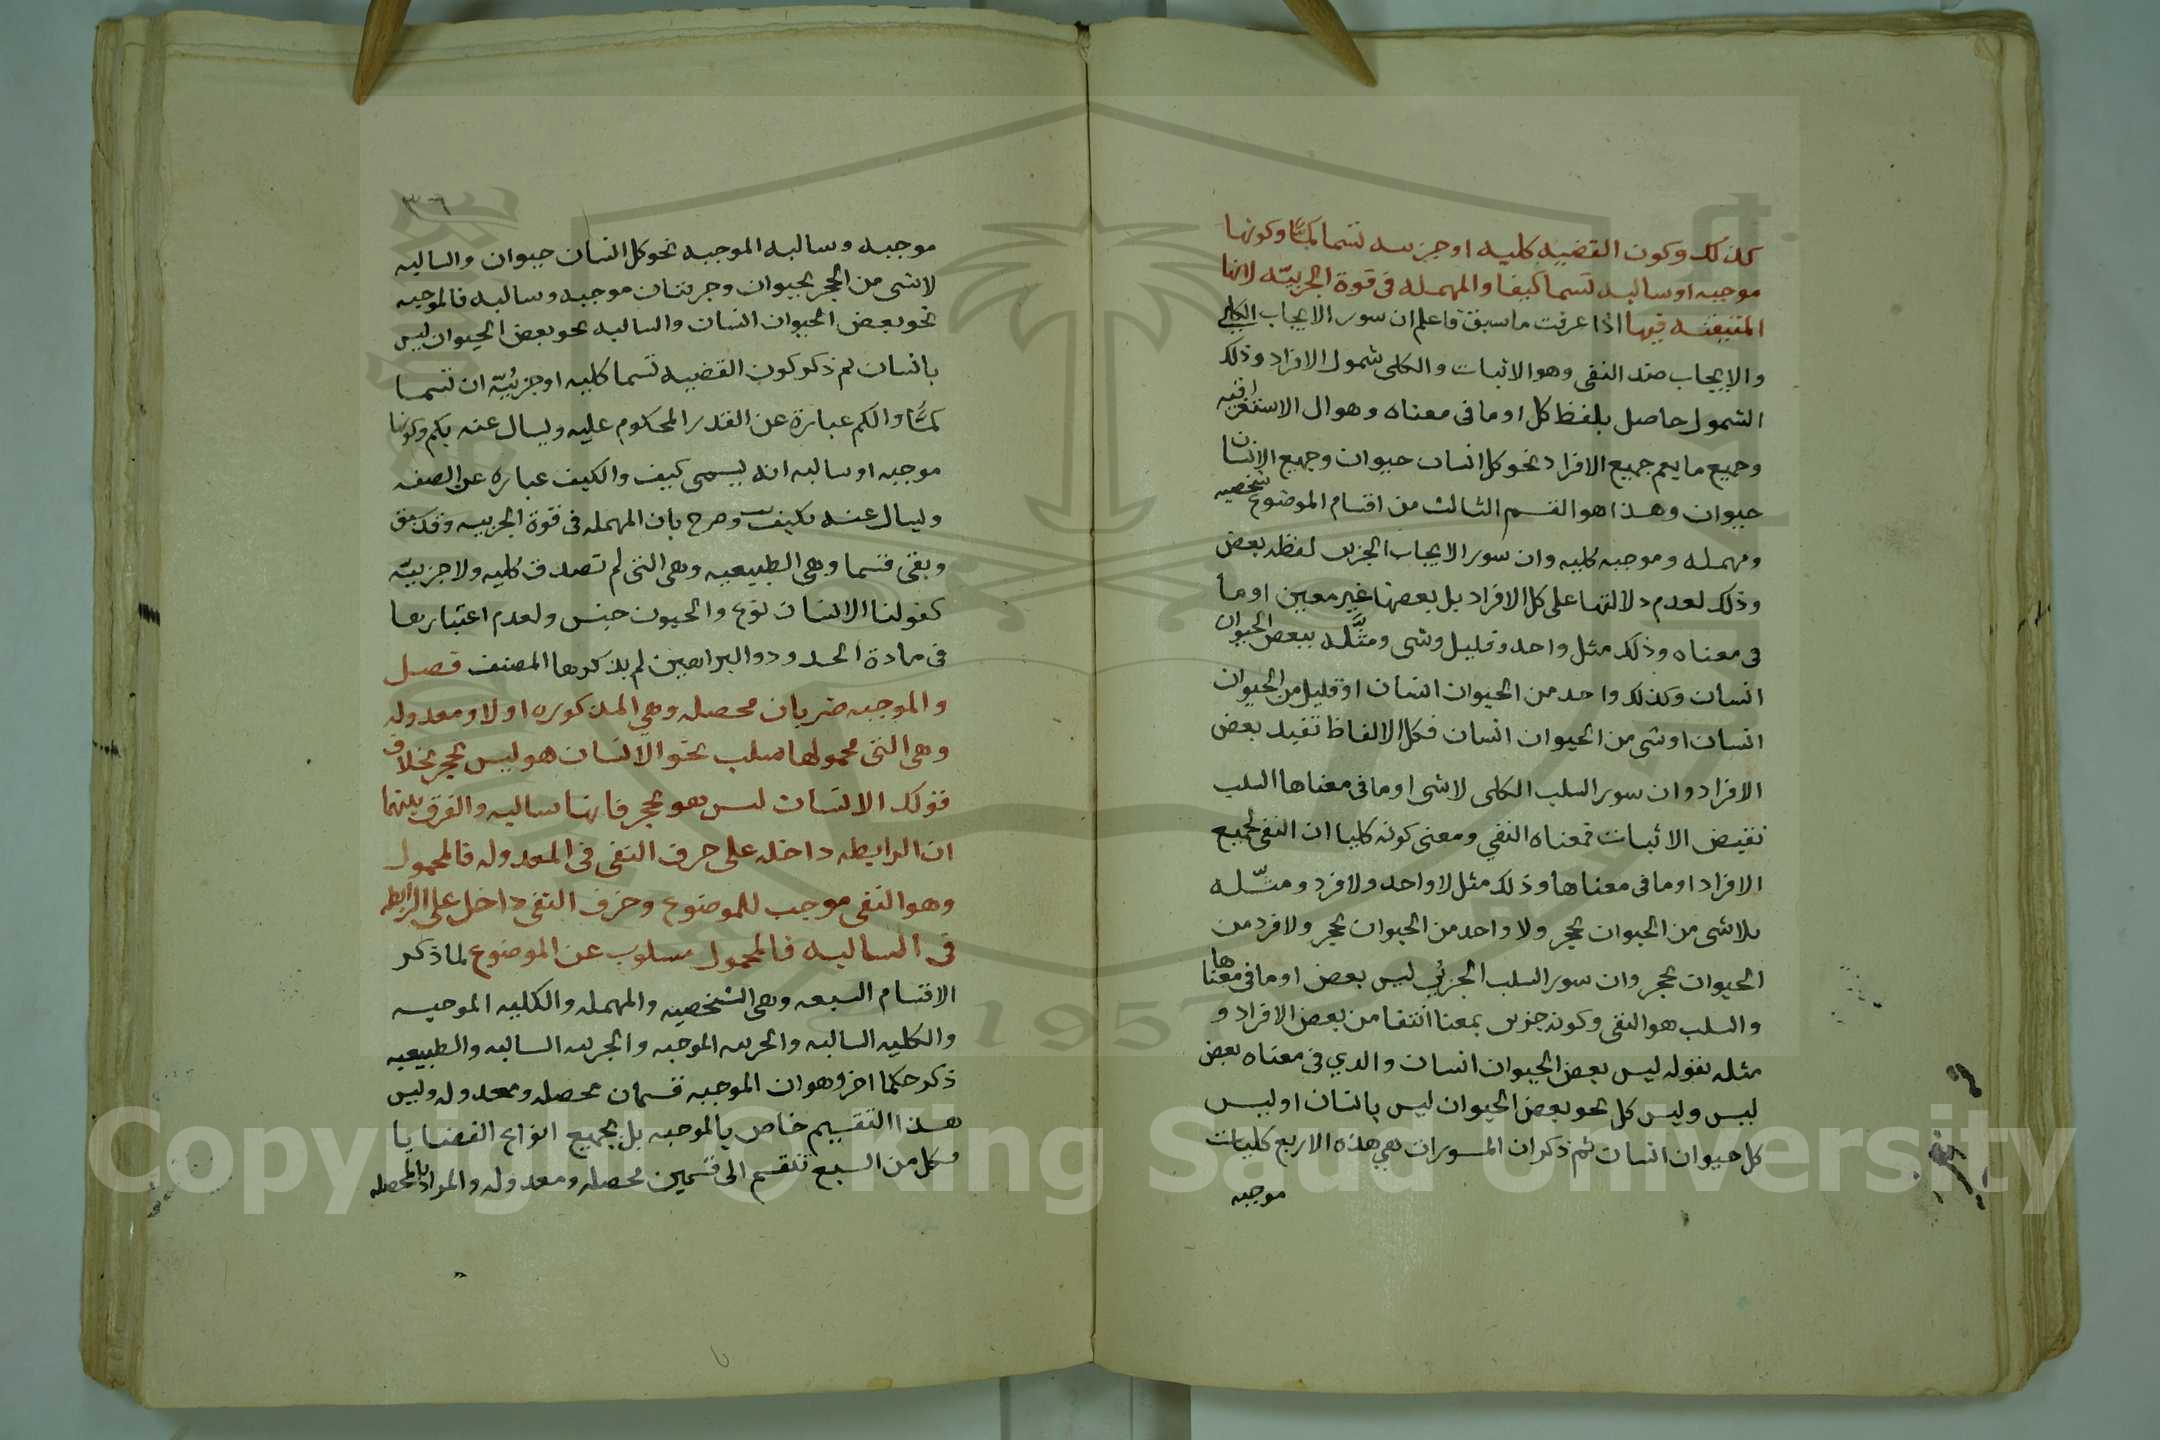 كذلك وكون القضيه كليه او جزييه تسما كمًّا وكونها
موجبه او سالبه تسما كيفا والمهمله في قوة الجزييّه لانها
المتيقنه فيها اذا عرفت ما سبق فاعلم ان سور الايجاب الكلي
والايجاب ضد النفى وهو الاثبات والكلى شمول الافراد وذلك
الشمول حاصل بلفظ كل او ما فى معناه وهو ال الاستغراقيه
وجميع ما يعم جميع الافراد نحو كل انسان حيوان وجميع الانسان
حيوان وهذا هو القسم الثالث من اقسام الموضوع شخصيه
ومهمله وموجبه كليه وان سور الايجاب الجزيى لفظه بعض
وذلك لعدم دلالتها على كل الافراد بل بعضها غير معين او ما
فى معناه وذلك مثل واحد وقليل وشى ومثَّله ببعض الحيوان
انسان وكذلك واحد من الحيوان انسان او قليل من الحيوان
انسان او شى من الحيوان انسان فكل الالفاظ تفيد بعض
الافراد وان سور السلب الكلى لاشى او ما فى معناها السلب
نقيض الاثبات فمعناه النفي ومعنى كونه كليا ان النفى لجميع
الافراد او ما فى معناها وذلك مثل لا واحد ولا فرد ومثّله
بلاشى من الحيوان بحجر ولا واحد من الحيوان بحجر ولا فرد من
الحيوان بحجر وان سور السلب الجزيي ليس بعض او ما فى معناها
والسلب هو النفى وكونه جزيى بمعنا انتفا من بعض الافراد و
مثله بقوله ليس بعض الحيوان انسان والذي فى معناه بعض
ليس وليس كل نحو بعض الحيوان ليس بانسان او ليس
كل حيوان انسان ثم ذكر ان المسورات هي هذه الاربع كليات
موجبه
٣٦
موجبه وسالبه الموجبه نحو كل انسان حيوان والسالبه
لاشى من الحجر بحيوان وجزيتان موجبه وسالبه فالموجبه
نحو بعض الحيوان انسان والسالبه نحو بعض الحيوان ليس
بانسان ثم ذكر كون القضيه تسما كليه او جزئيّه ان تسما
كمًّا والكم عبارة عن القدر المحكوم عليه ويسال عنه بكم وكونها
موجبه او سالبه انه يسمى كيف والكيف عباره عن الصفه
ويسال عنه بكيف وصرح بان المهمله فى قوة الجزييه وقد سبق
وبقى قسما وهى الطبيعيه وهى التى لم تصدق كليه ولا جزييّه
كقولنا الانسان نوع والحيون جنس ولعدم اعتبارها
فى مادة الحدود والبراهين لم يذكرها المصنف فصل
والموجبه ضربان محصله وهي المذكوره اولا ومعدوله
وهى التى محمولها سلب نحو الانسان هو ليس بحجر بخلاف
قولك الانسان ليس هو بحجر فانها سالبه والفرق بينهما
ان الرابطه داخله على حرف النفى فى المعدوله فالمحمول
وهو النفى موجب للموضوع وحرف النفى داخل على الرابطه
فى السالبه فالمحمول مسلوب عن الموضوع لما ذكر
الاقسام السبعه وهى الشخصيه والمهمله والكليه الموجبه
والكليه السالبه والجزييه الموجبه والجزييه السالبه والطبيعيه
ذكر حكما اخر وهو ان الموجبه قسمان محصله ومعدوله وليس
هذا التقسيم خاص بالموجبه بل بجميع انواع القضايا
فكل من السبع تنقسم الى قسمين محصله ومعدوله والمراد بالمحصله
1957
Copyright © King Saud University